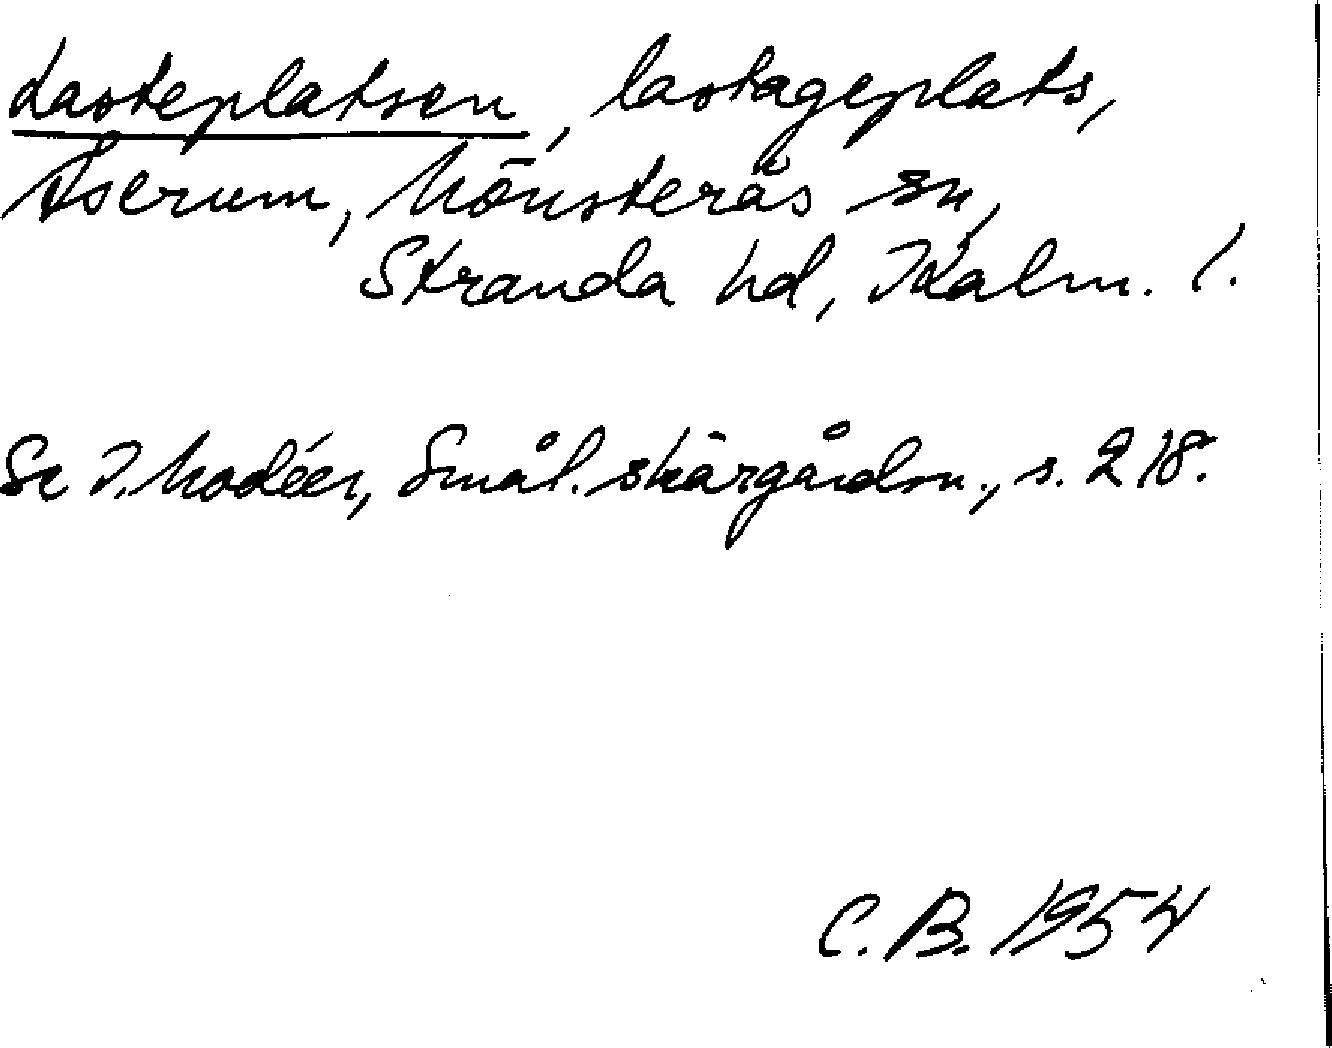 Lasteplatsen, lastageplats,
Åserum, Mönsterås sn,
Stranda hd, Kalm. l.
Se I. Modéer, Smål. skärgårdsn., s. 218.
C. B. 1954